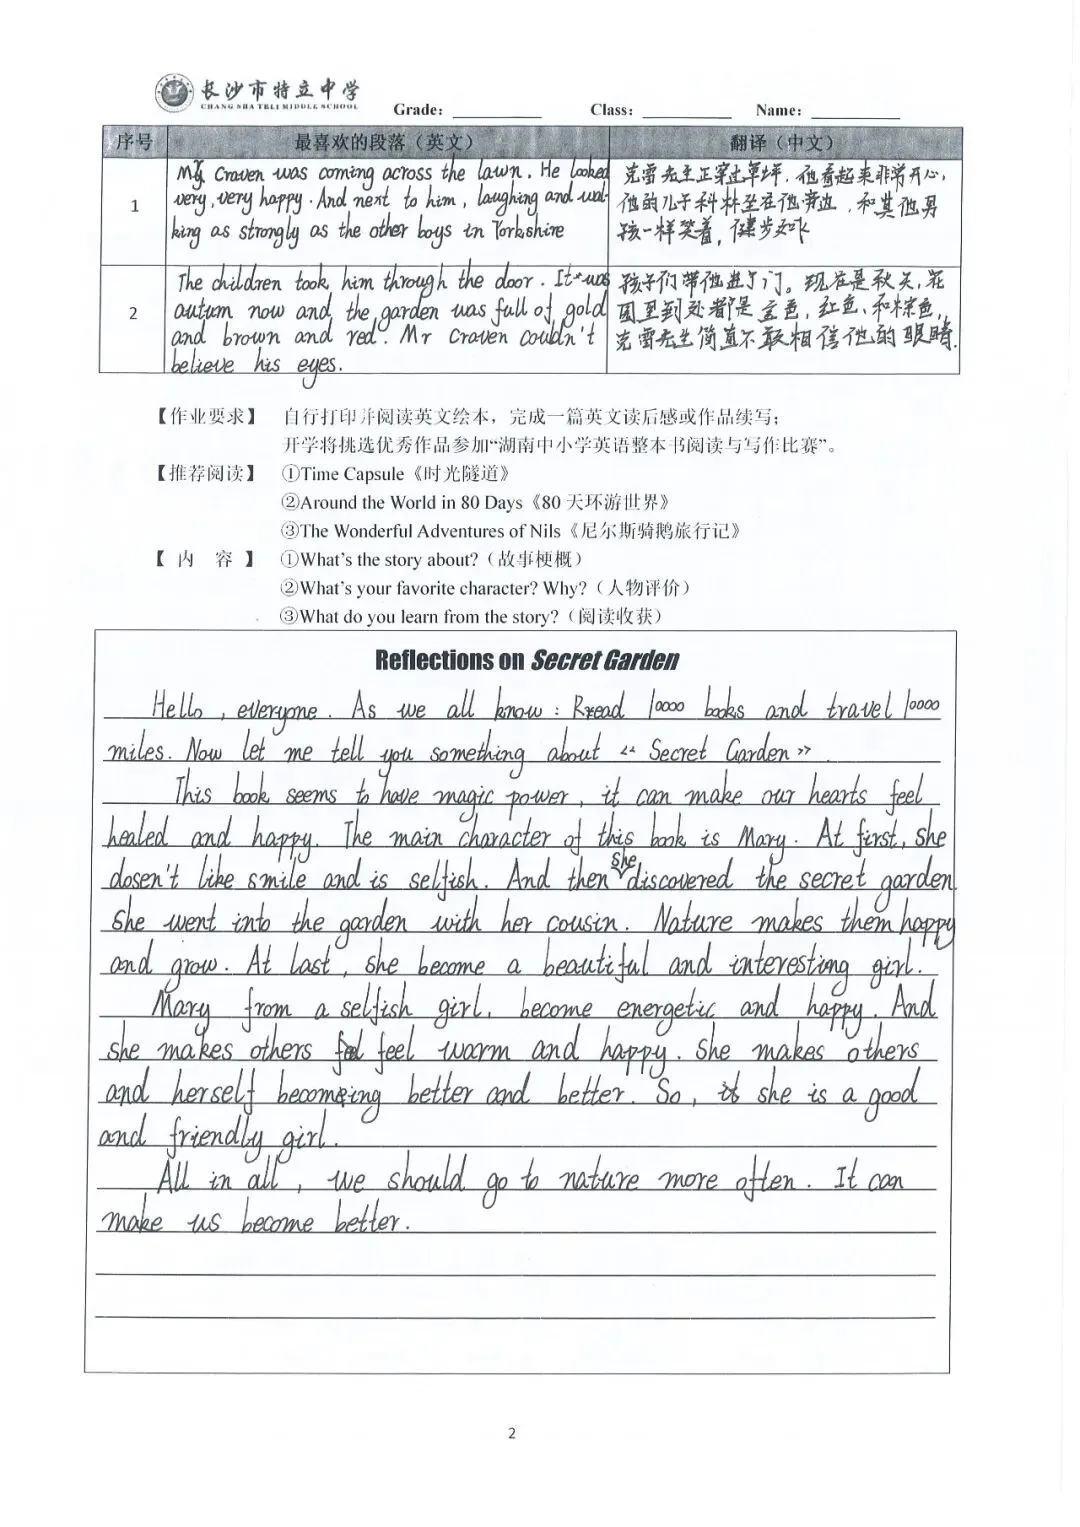 长沙市特立中学
CHANG SHA TELI MIDDLE SCHOOL
Grade: Class: Name:
序号 最喜欢的段落（英文） 翻译（中文）
1
Mr Craven was coming across the lawn. He looked
very, very happy. And next to him, laughing and wal-
king as strongly as the other boys in Yorkshire
克雷先生正穿过草坪，他看起来非常开心，
他的儿子科林坐在他旁边，和其他男
孩一样笑着，健步如飞
2
The children took him through the door. It was
autum now and the garden was full of gold
and brown and red. Mr Craven couldn't
believe his eyes.
孩子们带他进了门。现在是秋天，花
园里到处都是金色，红色，和棕色，
克雷先生简直不敢相信他的眼睛.
【作业要求】 自行打印并阅读英文绘本，完成一篇英文读后感或作品续写；
开学将挑选优秀作品参加“湖南中小学英语整本书阅读与写作比赛”。
【推荐阅读】 ①Time Capsule《时光隧道》
②Around the World in 80 Days《80 天环游世界》
③The Wonderful Adventures of Nils《尼尔斯骑鹅旅行记》
【 内 容 】 ①What's the story about?（故事梗概）
②What's your favorite character? Why?（人物评价）
③What do you learn from the story?（阅读收获）
Reflections on Secret Garden
Hello, everyone. As we all know: Read 10000 books and travel 10000
miles. Now let me tell you something about 《 Secret Garden 》
This book seems to have magic power, it can make our hearts feel
healed and happy. The main character of this book is Mary. At first, she
dosen't like smile and is selfish. And then she discovered the secret garden.
She went into the garden with her cousin. Nature makes them happy
and grow. At last, she become a beautiful and interesting girl.
Mary from a selfish girl, become energetic and happy. And
she makes others feel warm and happy. She makes others
and herself becoming better and better. So, she is a good
and friendly girl.
All in all, we should go to nature more often. It can
make us become better.
2